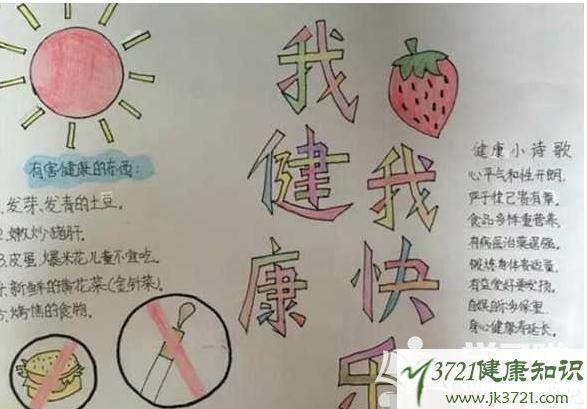 我健康
我快乐
有害健康的东西：
1.发芽、发青的土豆。
2.嫩炒猪肝。
3.皮蛋、爆米花儿童不宜吃。
4.新鲜的黄花菜(金针菜)。
5.烤焦的食物。
健康小诗歌
心平气和性开朗，
严于律己贵有章。
食品多样重营养，
有病医治莫逞强。
锻炼身体要适量，
有益爱好要发扬。
身心健康寿延长。
M3721健康知识
www.jk3721.com